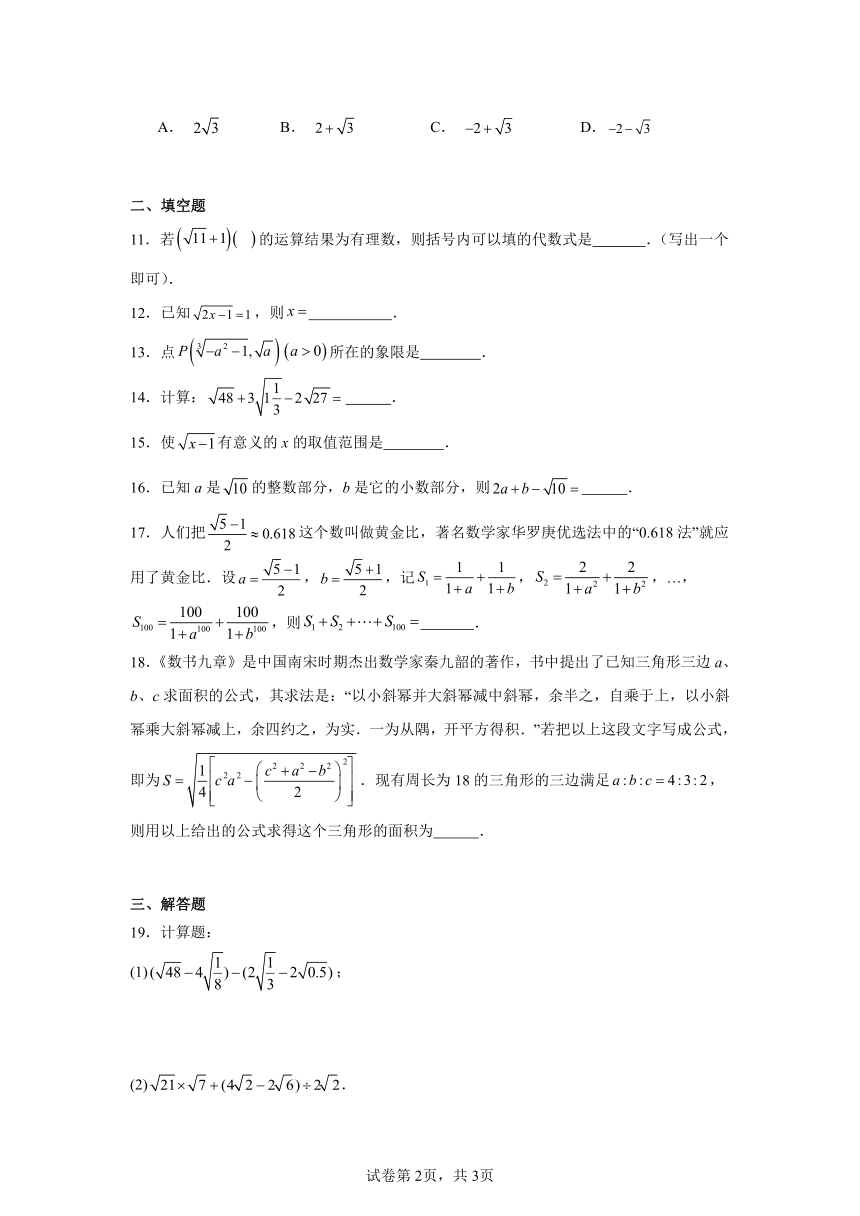 A. 2√3 B. 2+√3 C. −2+√3 D. −2−√3
二、填空题
11．若(√11+1)( )的运算结果为有理数，则括号内可以填的代数式是______．（写出一个
即可）．
12．已知√(2x−1)=1，则x=__________．
13．点P(∛(−a²−1),√a)(a>0)所在的象限是_______．
14．计算：√48+3√(1 1/3)−2√27=_____．
15．使√(x−1)有意义的x的取值范围是_______．
16．已知a是√10的整数部分，b是它的小数部分，则2a+b−√10=_____．
17．人们把(√5−1)/2≈0.618这个数叫做黄金比，著名数学家华罗庚优选法中的“0.618法”就应
用了黄金比．设a=(√5−1)/2，b=(√5+1)/2，记S₁=1/(1+a)+1/(1+b)，S₂=2/(1+a²)+2/(1+b²)，…，
S₁₀₀=100/(1+a¹⁰⁰)+100/(1+b¹⁰⁰)，则S₁+S₂+⋯+S₁₀₀=______．
18．《数书九章》是中国南宋时期杰出数学家秦九韶的著作，书中提出了已知三角形三边a、
b、c求面积的公式，其求法是：“以小斜幂并大斜幂减中斜幂，余半之，自乘于上，以小斜
幂乘大斜幂减上，余四约之，为实．一为从隅，开平方得积．”若把以上这段文字写成公式，
即为S=√(1/4[c²a²−((c²+a²−b²)/2)²])．现有周长为18的三角形的三边满足a:b:c=4:3:2，
则用以上给出的公式求得这个三角形的面积为_____．
三、解答题
19．计算题：
(1)(√48−4√(1/8))−(2√(1/3)−2√0.5)；
(2)√21×√7+(4√2−2√6)÷2√2．
试卷第2页，共3页